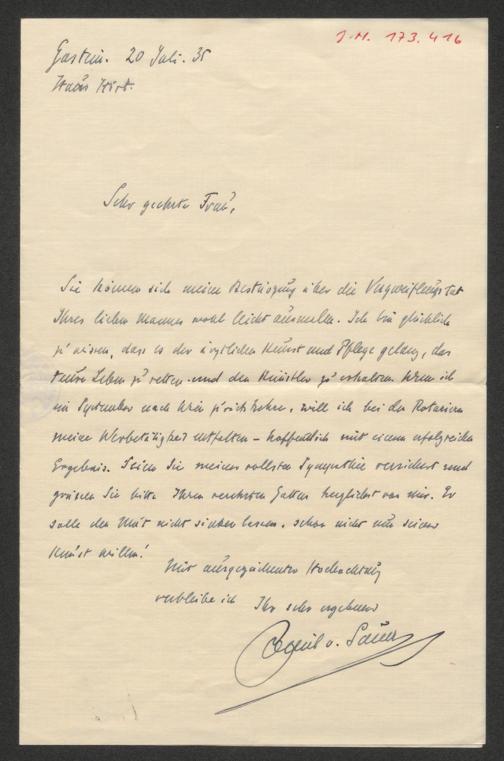 J.N. 173.416
Gastein. 20 Juli. 35
Haus Hirt.
Sehr geehrte Frau,
Sie können sich meine Bestürzung über die Verzweiflungstat
Ihres lieben Mannes wohl leicht ausmalen. Ich bin glücklich
zu wissen, dass es der ärztlichen Kunst und Pflege gelang, das
teure Leben zu retten und den Künstler zu erhalten. Wenn ich
im September nach Wien zurückkehre, will ich bei den Rotariern
meine Werbetätigkeit entfalten – hoffentlich mit einem erfolgreichen
Ergebnis. Seien Sie meiner vollsten Sympathie versichert und
grüssen Sie bitte Ihren verehrten Gatten herzlichst von mir. Er
solle den Mut nicht sinken lassen, schon nicht um seiner
Kunst willen!
Mit ausgezeichneter Hochachtung
verbleibe ich Ihr sehr ergebener
Emil v. Sauer